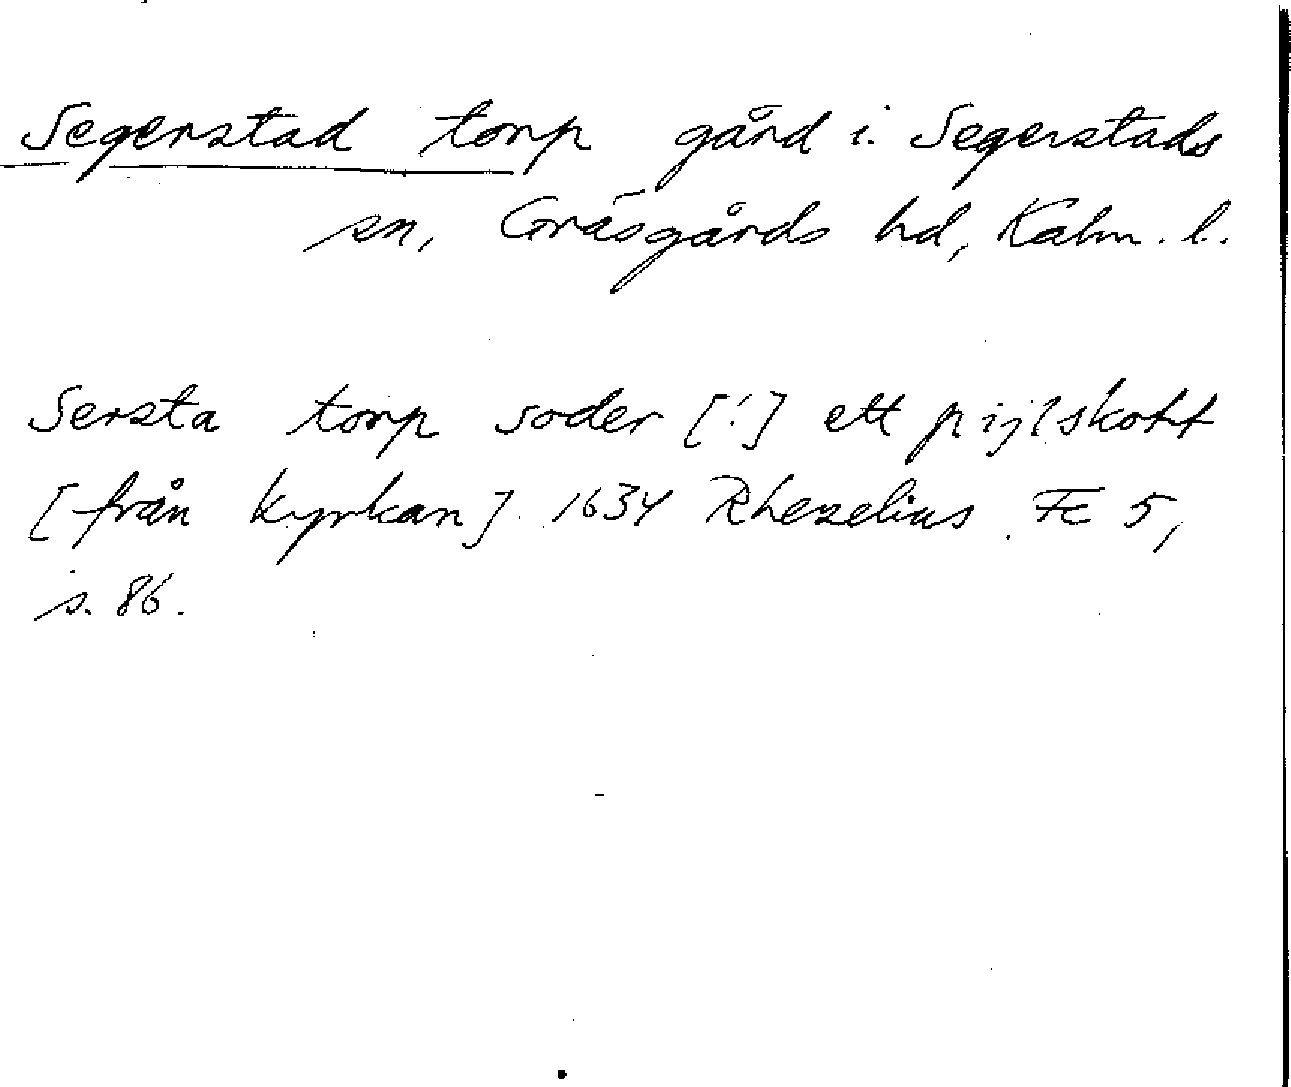 Segerstad torp gård i Segerstads
sn, Gräsgårds hd, Kalm. l.
Sersta torp soder [!] ett pijlskott
[från kyrkan]. 1634 Rhezelius. Fc 5,
s. 86.